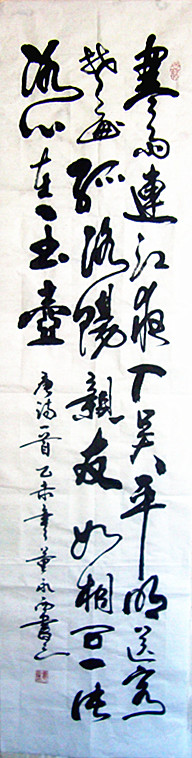 寒雨連江夜入吳平明送客
楚山孤洛陽親友如相問一片
冰心在玉壺
唐詩一首乙亥董永書